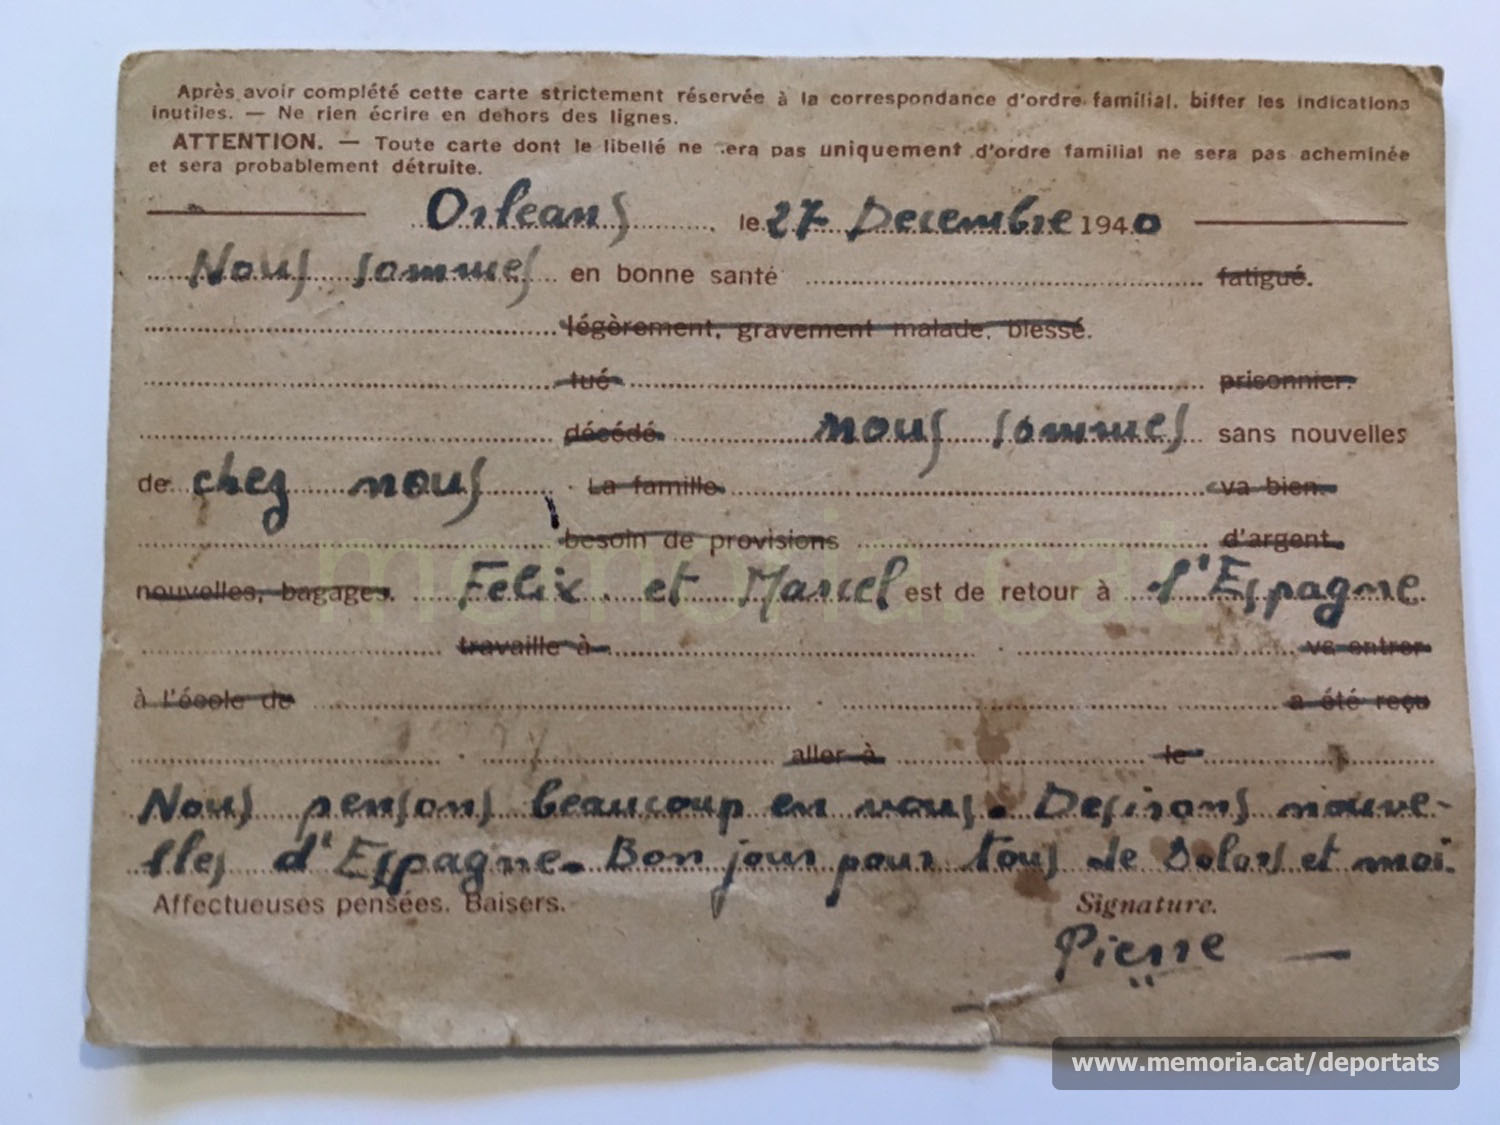 Après avoir complété cette carte strictement réservée à la correspondance d'ordre familial, biffer les indications
inutiles. — Ne rien écrire en dehors des lignes.
ATTENTION. — Toute carte dont le libellé ne sera pas uniquement d'ordre familial ne sera pas acheminée
et sera probablement détruite.
Orleans, le 27 Decembre 1940
Nous sommes en bonne santé fatigué.
légèrement, gravement malade, blessé.
tué prisonnier.
décédé nous sommes sans nouvelles
de chez nous. La famille va bien.
besoin de provisions d'argent.
nouvelles, bagages. Felix et Marcel est de retour à l'Espagne
travaille à va entrer
à l'école de a été reçu
aller à le
Nous pensons beaucoup en vous. Desirons nouve-
lles d'Espagne. Bon jour pour tous de Dolors et moi.
Affectueuses pensées. Baisers. Signature.
Pierre
memoria.cat
www.memoria.cat/deportats